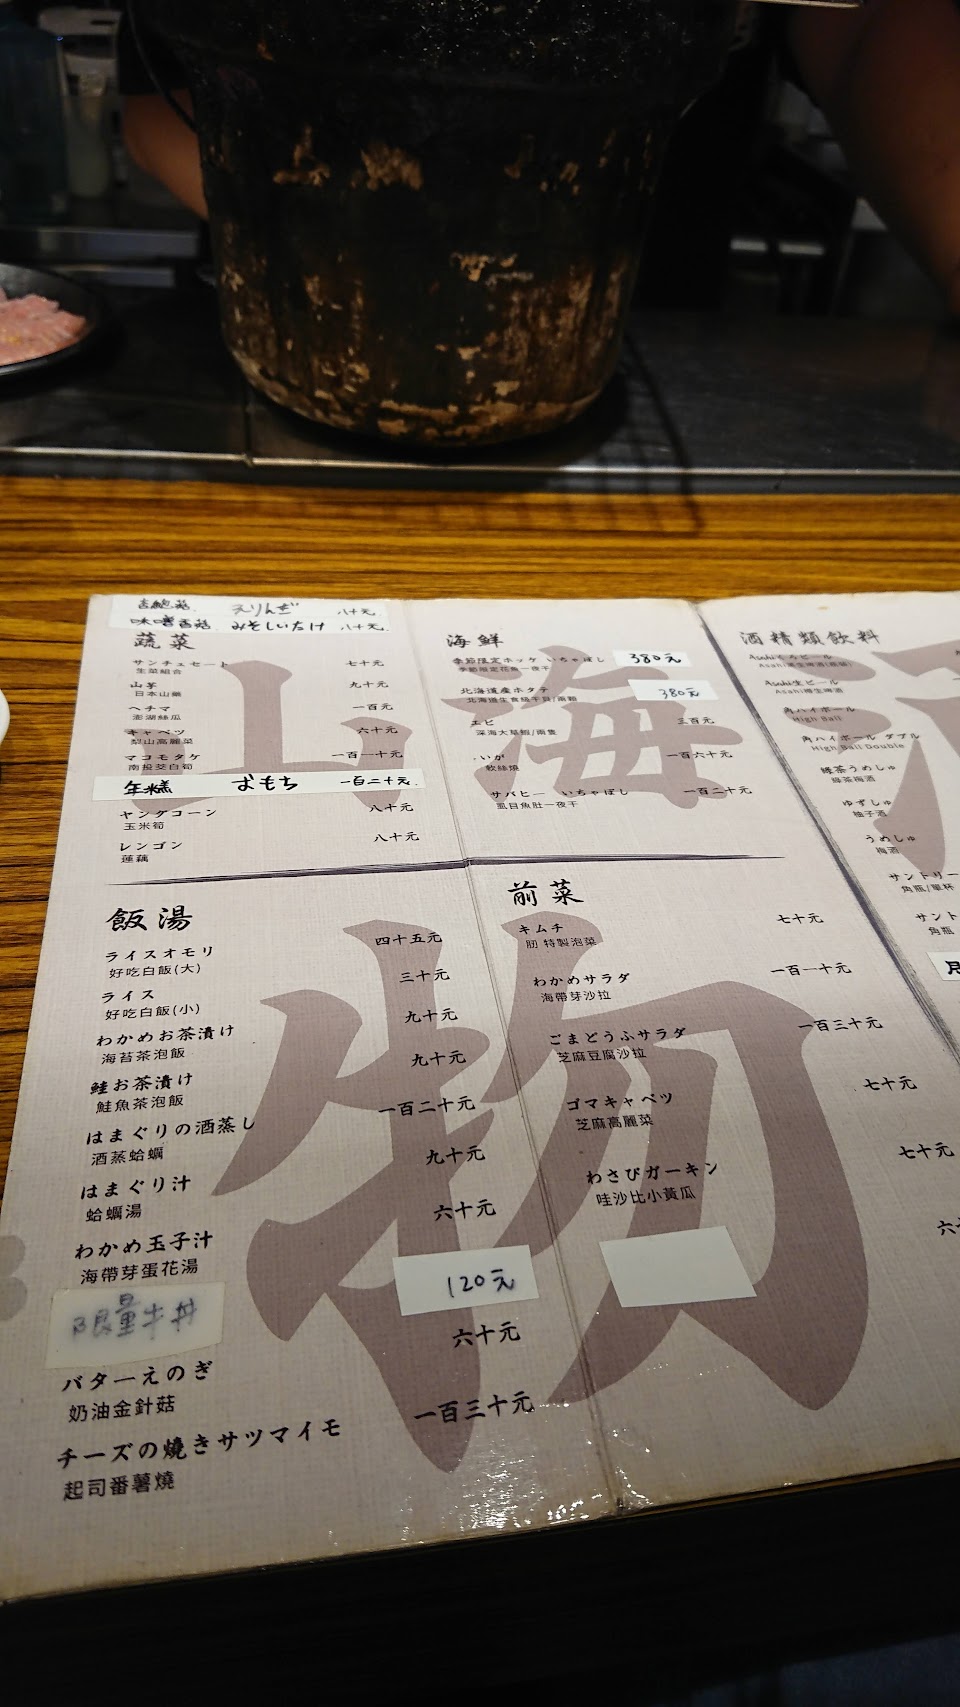 杏鮑菇 えりんぎ 八十元
味噌香菇 みそしいたけ 八十元
蔬菜
サンチュセート 七十元
生菜組合
山芋 九十元
日本山藥
ヘチマ 一百元
澎湖絲瓜
キャベツ 六十元
梨山高麗菜
マコモタケ 一百一十元
南投茭白筍
年糕 おもち 一百二十元
ヤングコーン 八十元
玉米筍
レンゴン 八十元
蓮藕
海鮮
季節限定ホッケ いちゃぼし 380元
季節限定花魚一夜干
北海道産ホタテ 380元
北海道生食級干貝/兩顆
エビ 三百元
深海大草蝦/兩隻
いか 一百六十元
軟絲燒
サバヒー いちゃぼし 一百二十元
虱目魚肚一夜干
酒精類飲料
Asahi生ビール
Asahi樽生啤酒
角ハイボール
High Ball
角ハイボール ダブル
High Ball Double
緑茶うめしゅ
綠茶梅酒
ゆずしゅ
柚子酒
うめしゅ
梅酒
サントリー
角瓶/單杯
サント
角瓶
飯湯
ライスオモリ 四十五元
好吃白飯(大)
ライス 三十元
好吃白飯(小)
わかめお茶漬け 九十元
海苔茶泡飯
鮭お茶漬け 九十元
鮭魚茶泡飯
はまぐりの酒蒸し 一百二十元
酒蒸蛤蠣
はまぐり汁 九十元
蛤蠣湯
わかめ玉子汁 六十元
海帶芽蛋花湯
限量牛丼 120元
バターえのぎ 六十元
奶油金針菇
チーズの焼きサツマイモ 一百三十元
起司番薯燒
前菜
キムチ 七十元
肕 特製泡菜
わかめサラダ 一百一十元
海帶芽沙拉
ごまどうふサラダ 一百三十元
芝麻豆腐沙拉
ゴマキャベツ 七十元
芝麻高麗菜
わさびガーキン 七十元
哇沙比小黃瓜
山海
物